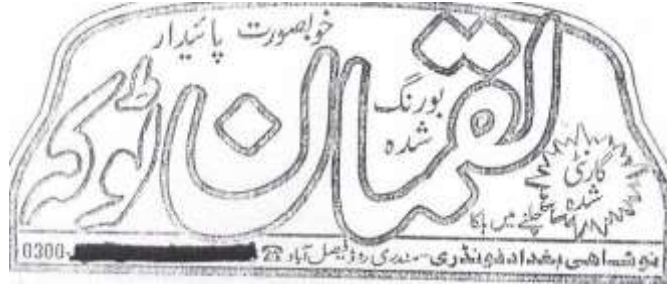 خوبصورت پائیدار
لقمان ٹوکہ
بورنگ
شدہ
گارنٹی
شدہ
چلنے میں ہلکا
نوشاھی بغداد فونڈری سمندری روڈ فیصل آباد ☎ 0300-